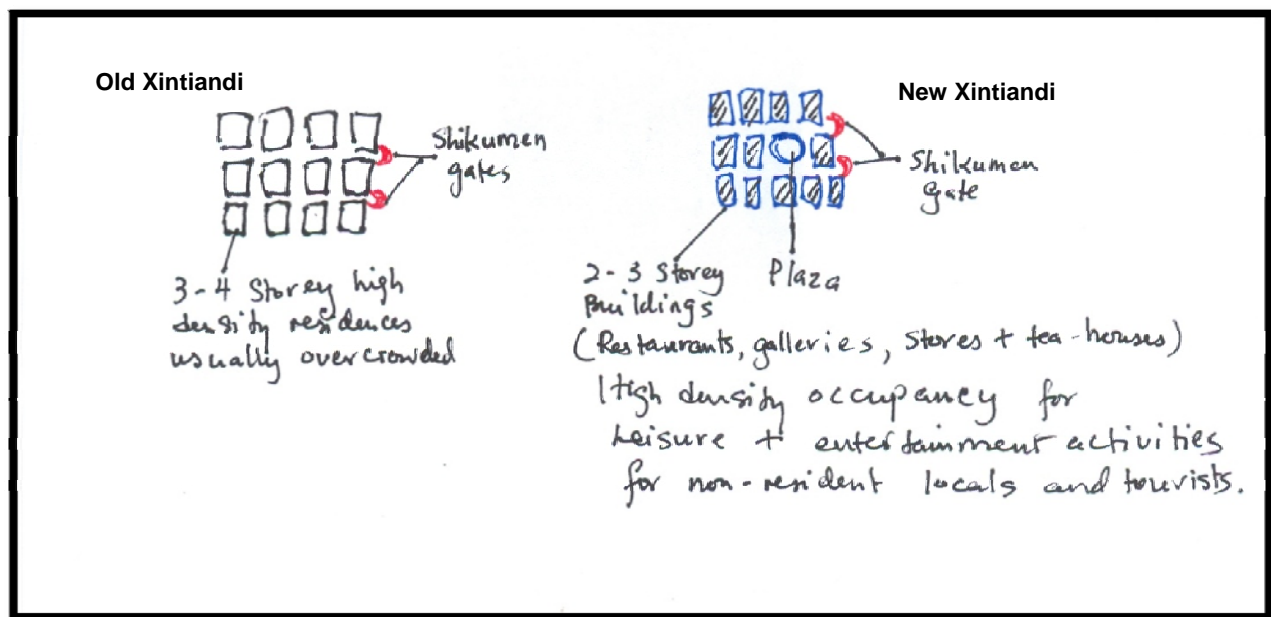 Old Xintiandi
Shikumen
gates
3-4 Storey high
density residences
usually overcrowded
New Xintiandi
Shikumen
gate
2-3 Storey
Buildings
Plaza
(Restaurants, galleries, Stores + tea-houses)
High density occupancy for
Leisure + entertainment activities
for non-resident locals and tourists.